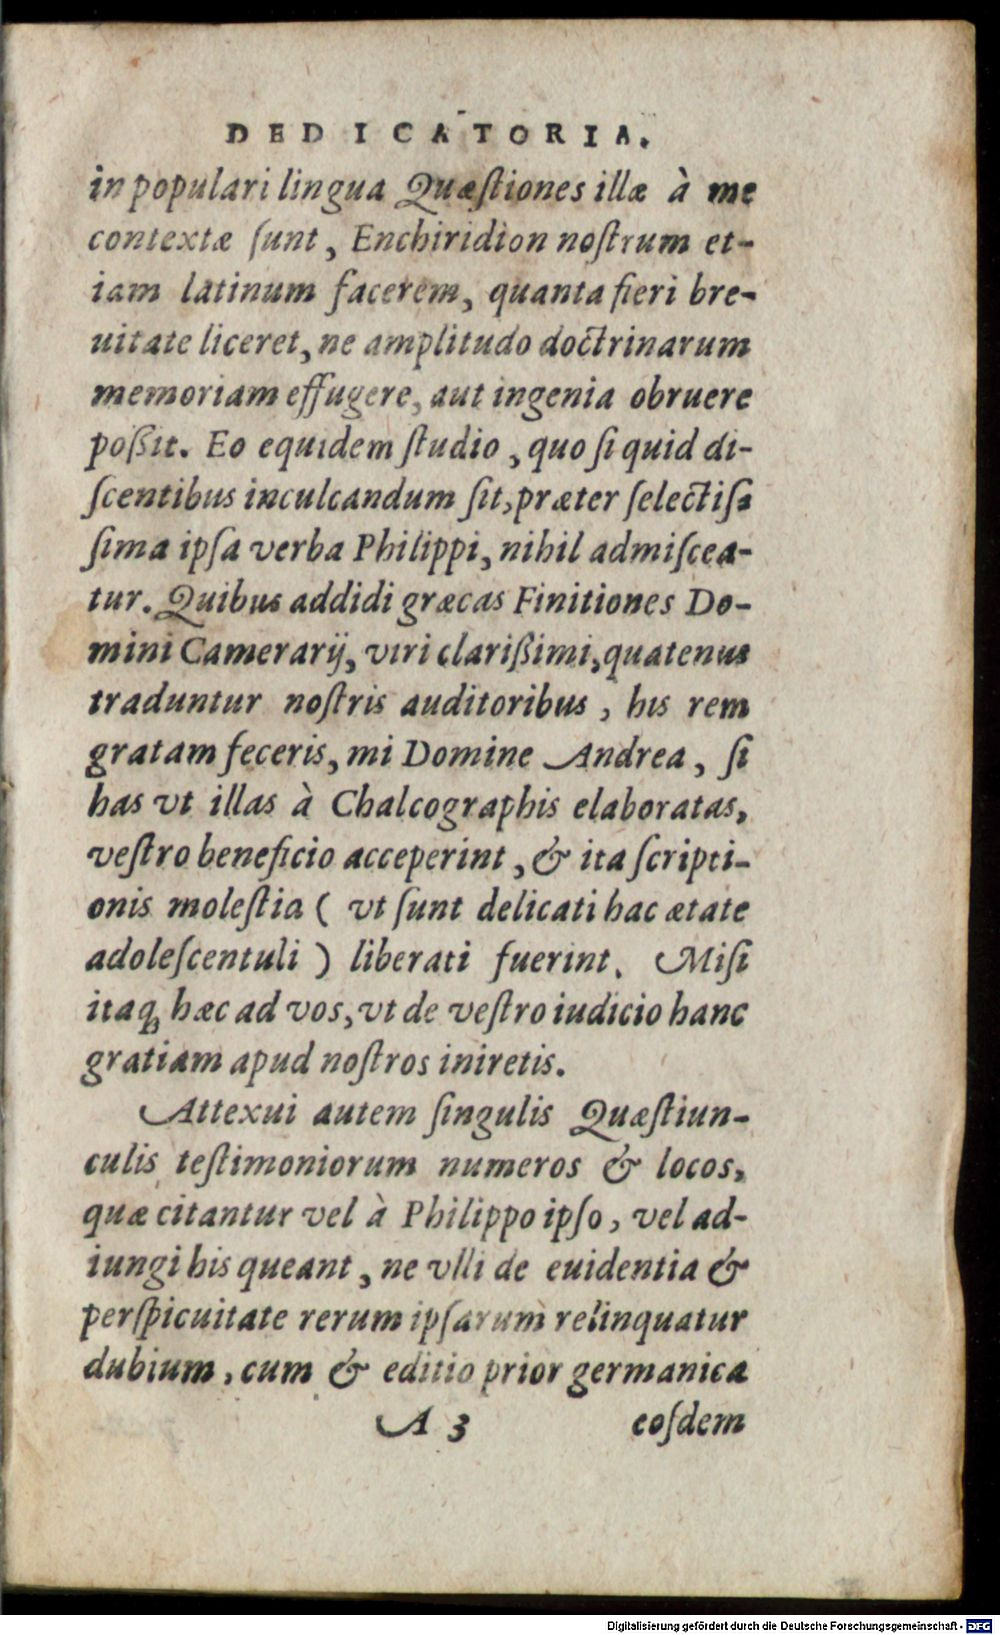 DEDICATORIA.
in populari lingua Quæſtiones illæ à me
contextæ ſunt, Enchiridion noſtrum et-
iam latinum facerem, quanta fieri bre-
uitate liceret, ne amplitudo doctrinarum
memoriam effugere, aut ingenia obruere
poßit. Eo equidem ſtudio, quo ſi quid di-
ſcentibus inculcandum ſit, præter ſelectiſ-
ſima ipſa verba Philippi, nihil admiſcea-
tur. Quibus addidi græcas Finitiones Do-
mini Camerarij, viri clarißimi, quatenus
traduntur noſtris auditoribus, his rem
gratam feceris, mi Domine Andrea, ſi
has vt illas à Chalcographis elaboratas,
veſtro beneficio acceperint, & ita ſcripti-
onis moleſtia ( vt ſunt delicati hac ætate
adoleſcentuli ) liberati fuerint. Miſi
itaq; hæc ad vos, vt de veſtro iudicio hanc
gratiam apud noſtros iniretis.
Attexui autem ſingulis Quæſtiun-
culis teſtimoniorum numeros & locos,
quæ citantur vel à Philippo ipſo, vel ad-
iungi his queant, ne vlli de euidentia &
perſpicuitate rerum ipſarum relinquatur
dubium, cum & editio prior germanica
A 3 eoſdem
Digitalisierung gefördert durch die Deutsche Forschungsgemeinschaft - DFG